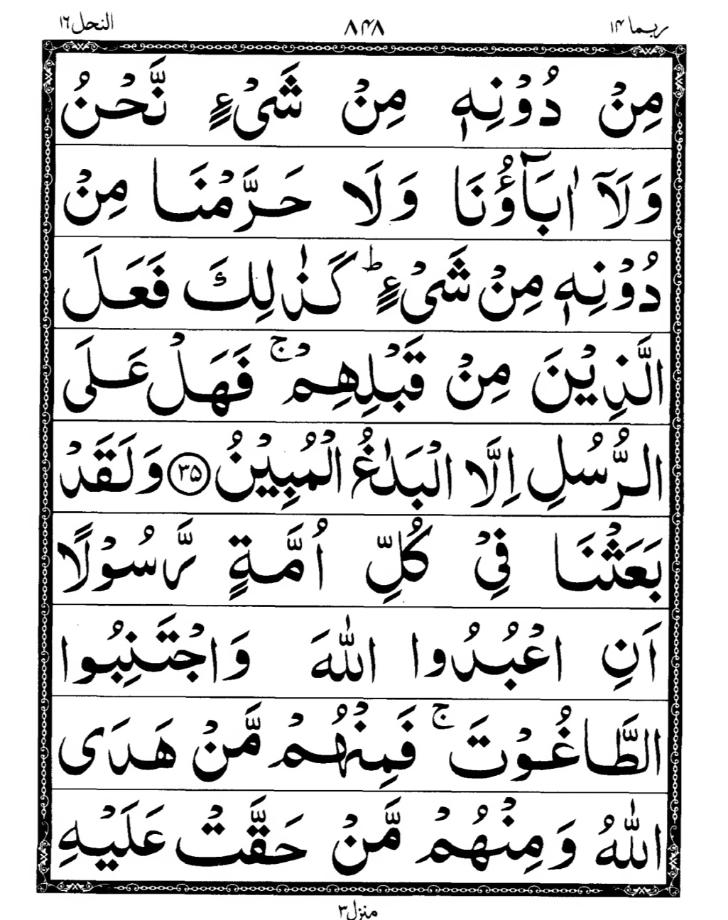 ربما ۱۴ ۸۴۸ النحل ۱۶
مِنْ دُوْنِهٖ مِنْ شَیْءٍ نَّحْنُ
وَلَاۤ اٰبَآؤُنَا وَلَا حَرَّمْنَا مِنْ
دُوْنِهٖ مِنْ شَیْءٍ ؕ كَذٰلِكَ فَعَلَ
الَّذِیْنَ مِنْ قَبْلِهِمْ ۚ فَهَلْ عَلَی
الرُّسُلِ اِلَّا الْبَلٰغُ الْمُبِیْنُ ۳۵ وَلَقَدْ
بَعَثْنَا فِیْ كُلِّ اُمَّةٍ رَّسُوْلًا
اَنِ اعْبُدُوا اللّٰهَ وَاجْتَنِبُوا
الطَّاغُوْتَ ۚ فَمِنْهُمْ مَّنْ هَدَی
اللّٰهُ وَمِنْهُمْ مَّنْ حَقَّتْ عَلَیْهِ
منزل ۳